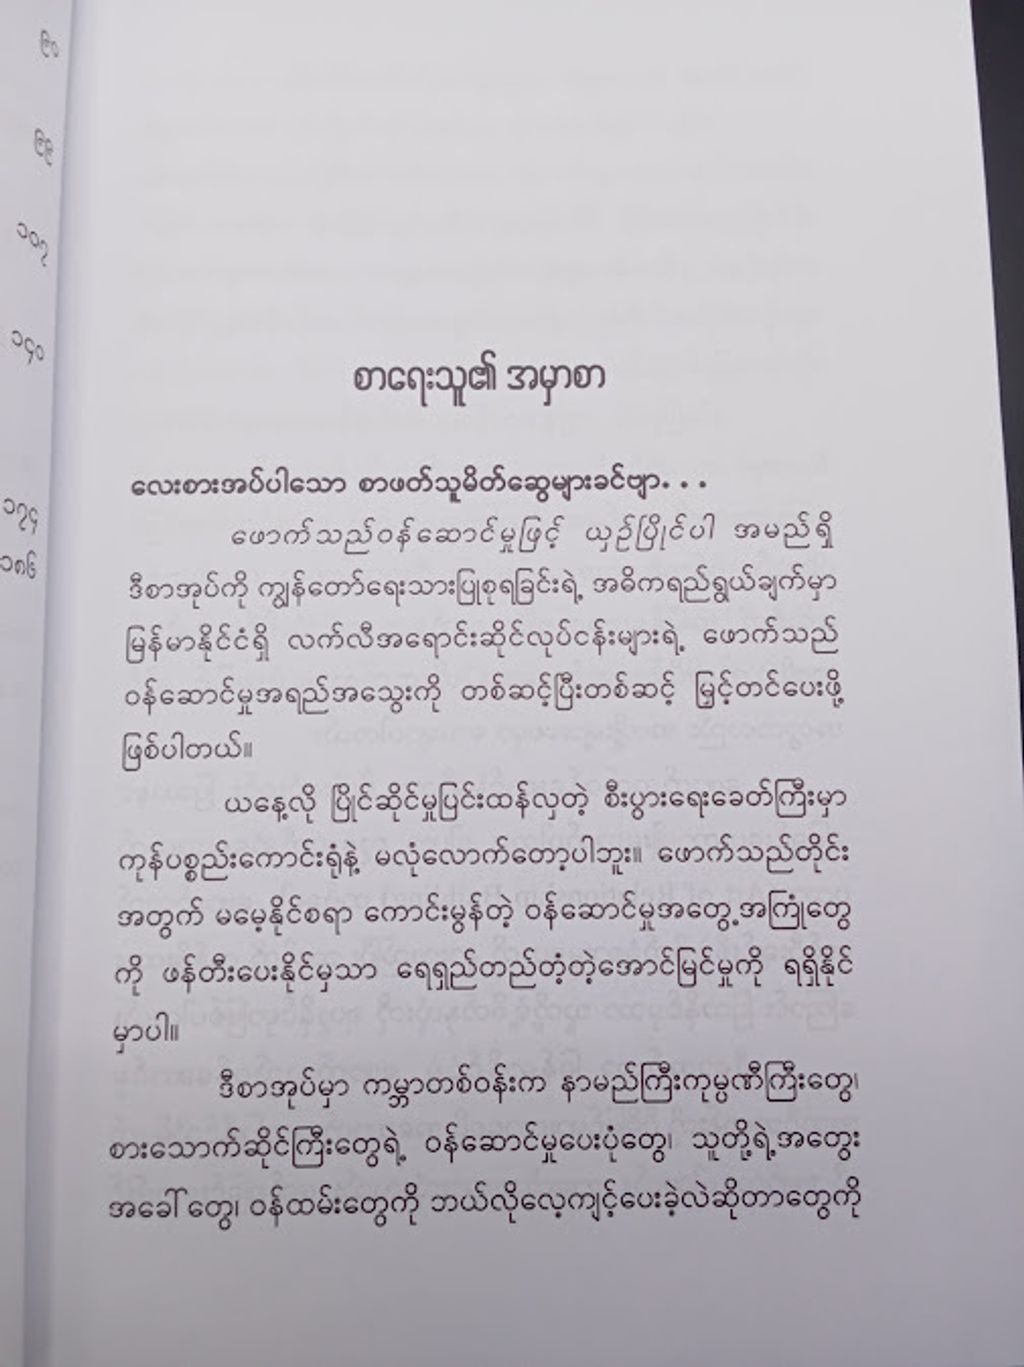 ၉၀
၉၉
၁၀၇
၁၄၀
၁၇၄
၁၈၆
စာရေးသူ၏ အမှာစာ
လေးစားအပ်ပါသော စာဖတ်သူမိတ်ဆွေများခင်ဗျာ. . .
ဖောက်သည်ဝန်ဆောင်မှုဖြင့် ယှဉ်ပြိုင်ပါ အမည်ရှိ
ဒီစာအုပ်ကို ကျွန်တော်ရေးသားပြုစုရခြင်းရဲ့ အဓိကရည်ရွယ်ချက်မှာ
မြန်မာနိုင်ငံရှိ လက်လီအရောင်းဆိုင်လုပ်ငန်းများရဲ့ ဖောက်သည်
ဝန်ဆောင်မှုအရည်အသွေးကို တစ်ဆင့်ပြီးတစ်ဆင့် မြှင့်တင်ပေးဖို့
ဖြစ်ပါတယ်။
ယနေ့လို ပြိုင်ဆိုင်မှုပြင်းထန်လှတဲ့ စီးပွားရေးခေတ်ကြီးမှာ
ကုန်ပစ္စည်းကောင်းရုံနဲ့ မလုံလောက်တော့ပါဘူး။ ဖောက်သည်တိုင်း
အတွက် မမေ့နိုင်စရာ ကောင်းမွန်တဲ့ ဝန်ဆောင်မှုအတွေ့အကြုံတွေ
ကို ဖန်တီးပေးနိုင်မှသာ ရေရှည်တည်တံ့တဲ့အောင်မြင်မှုကို ရရှိနိုင်
မှာပါ။
ဒီစာအုပ်မှာ ကမ္ဘာတစ်ဝန်းက နာမည်ကြီးကုမ္ပဏီကြီးတွေ၊
စားသောက်ဆိုင်ကြီးတွေရဲ့ ဝန်ဆောင်မှုပေးပုံတွေ၊ သူတို့ရဲ့အတွေး
အခေါ်တွေ၊ ဝန်ထမ်းတွေကို ဘယ်လိုလေ့ကျင့်ပေးခဲ့လဲဆိုတာတွေကို